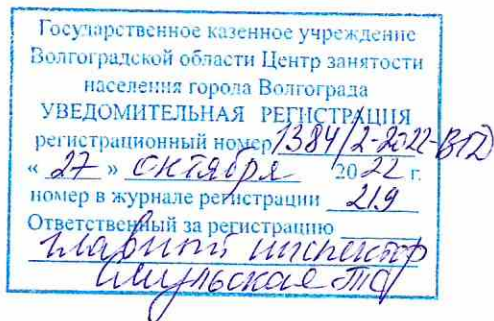 Государственное казенное учреждение
Волгоградской области Центр занятости
населения города Волгограда
УВЕДОМИТЕЛЬНАЯ РЕГИСТРАЦИЯ
регистрационный номер 1384/2-2022-ВГД
« 27 » октября 2022 г.
номер в журнале регистрации 219
Ответственный за регистрацию
главный инспектор